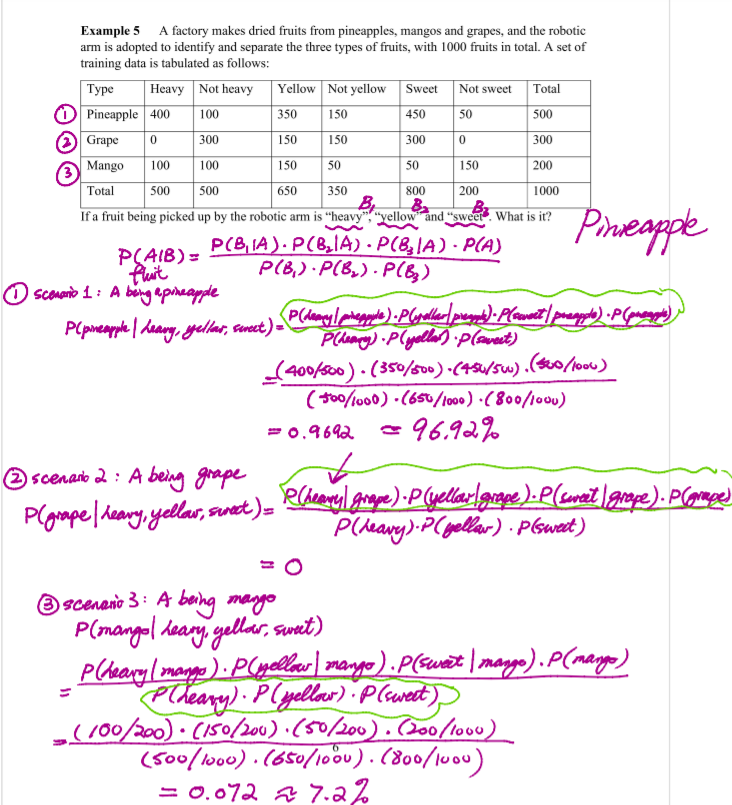 Example 5 A factory makes dried fruits from pineapples, mangos and grapes, and the robotic
arm is adopted to identify and separate the three types of fruits, with 1000 fruits in total. A set of
training data is tabulated as follows:
Type Heavy Not heavy Yellow Not yellow Sweet Not sweet Total
① Pineapple 400 100 350 150 450 50 500
② Grape 0 300 150 150 300 0 300
③ Mango 100 100 150 50 50 150 200
Total 500 500 650 350 800 200 1000
B₁ B₂ B₃
If a fruit being picked up by the robotic arm is “heavy”, “yellow” and “sweet”. What is it?
Pineapple
P(A|B) = P(B₁|A)·P(B₂|A)·P(B₃|A)·P(A)
P(B₁)·P(B₂)·P(B₃)
fruit
① scenario 1: A being a pineapple
P(pineapple | heavy, yellow, sweet) = P(heavy|pineapple)·P(yellow|pineapple)·P(sweet|pineapple)·P(pineapple)
P(heavy)·P(yellow)·P(sweet)
= (400/500)·(350/500)·(450/500)·(500/1000)
(500/1000)·(650/1000)·(800/1000)
= 0.9692 = 96.92%
② scenario 2: A being grape
P(grape | heavy, yellow, sweet) = P(heavy|grape)·P(yellow|grape)·P(sweet|grape)·P(grape)
P(heavy)·P(yellow)·P(sweet)
= 0
③ scenario 3: A being mango
P(mango| heavy, yellow, sweet)
= P(heavy|mango)·P(yellow|mango)·P(sweet|mango)·P(mango)
P(heavy)·P(yellow)·P(sweet)
= (100/200)·(150/200)·(50/200)·(200/1000)
6
(500/1000)·(650/1000)·(800/1000)
= 0.072 ≈ 7.2%